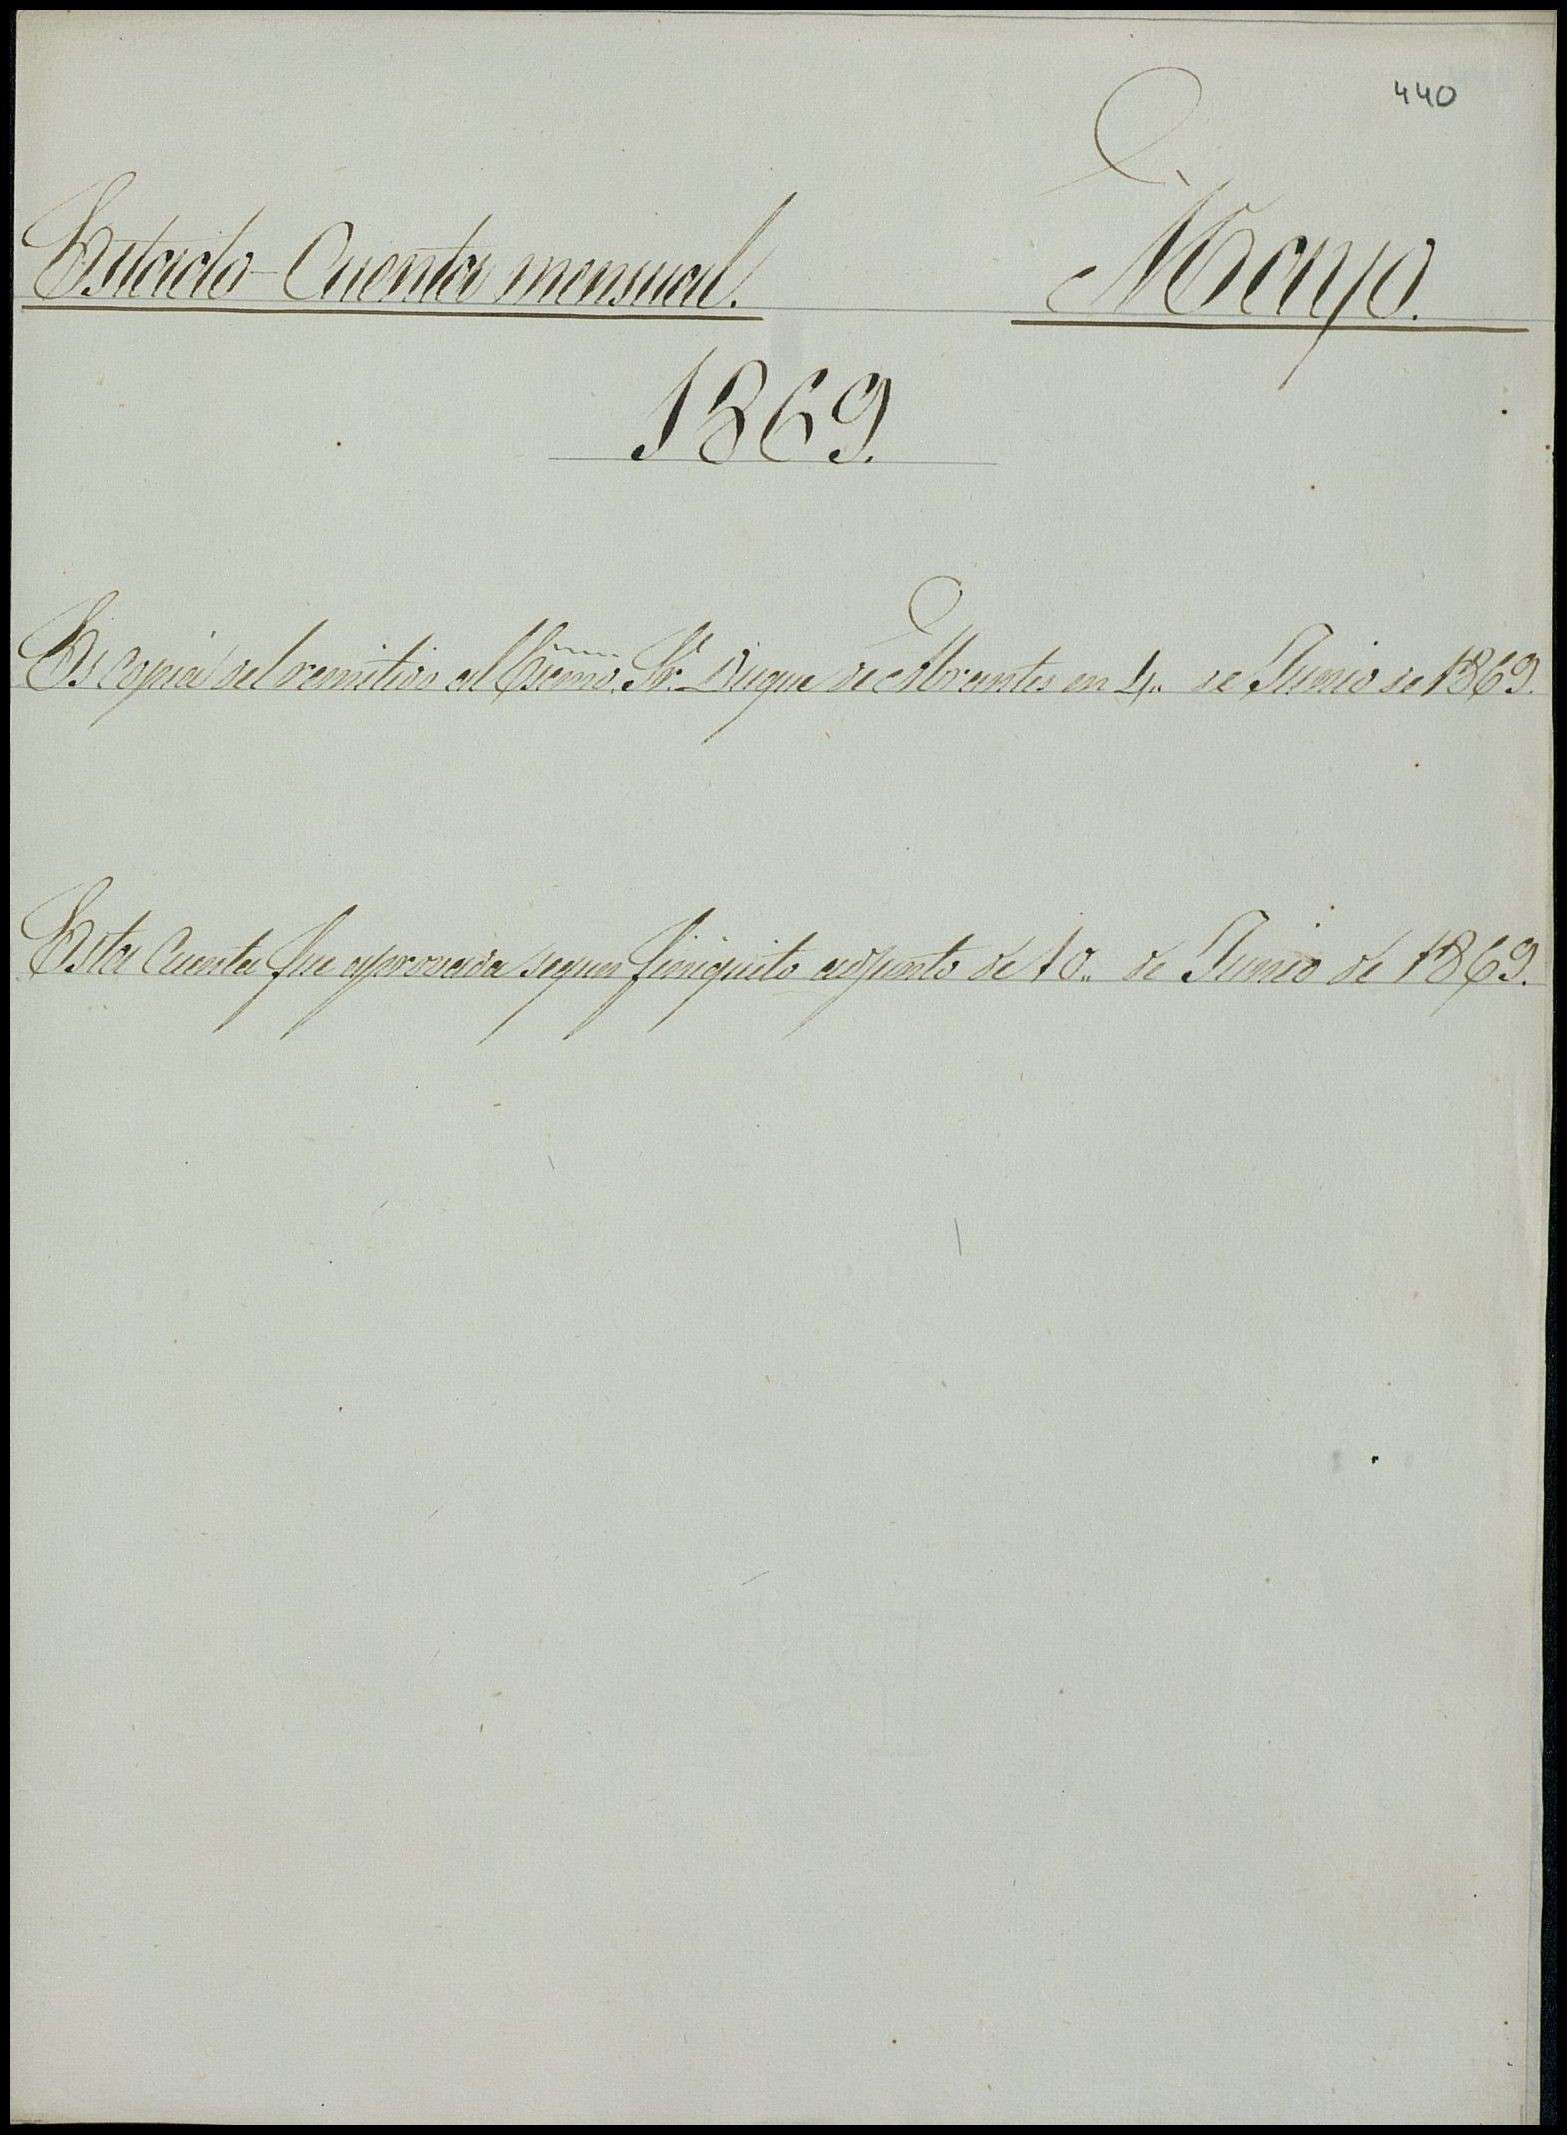 440
Estado-Cuenta mensual. Mayo.
1869.
Es copia del remitido al Excmo. Sr. Duque de Abrantes en 4,, de Junio de 1869.
Esta Cuenta fue aprovada segun finiquito adjunto de 10,, de Junio de 1869.